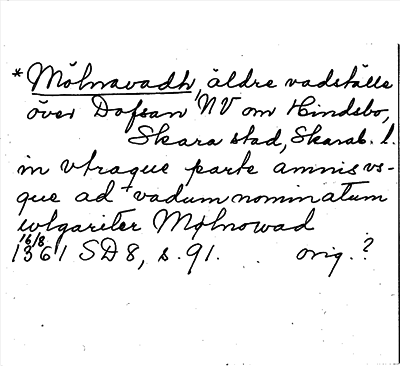 *Mölnavadh, äldre vadställe
över Dofsan NV om Hindsbo,
Skara stad, Skarab. l.
in vtraque parte amnis vs-
que ad vadum nominatum
wlgariter Mølnowad
16/8 1361 SD 8, s. 91. orig.?